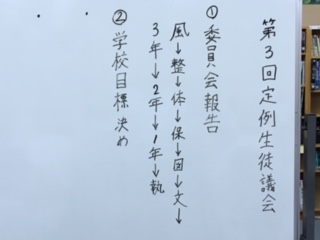 第3回定例生徒議会
①委員会報告
風→整→体→保→図→文→
3年→2年→1年→執
②学校目標決め